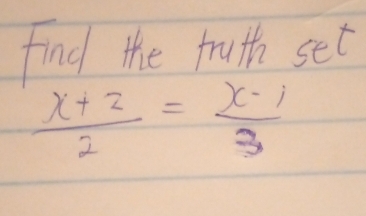 Find the truth set
x+2/2 = x-1/3